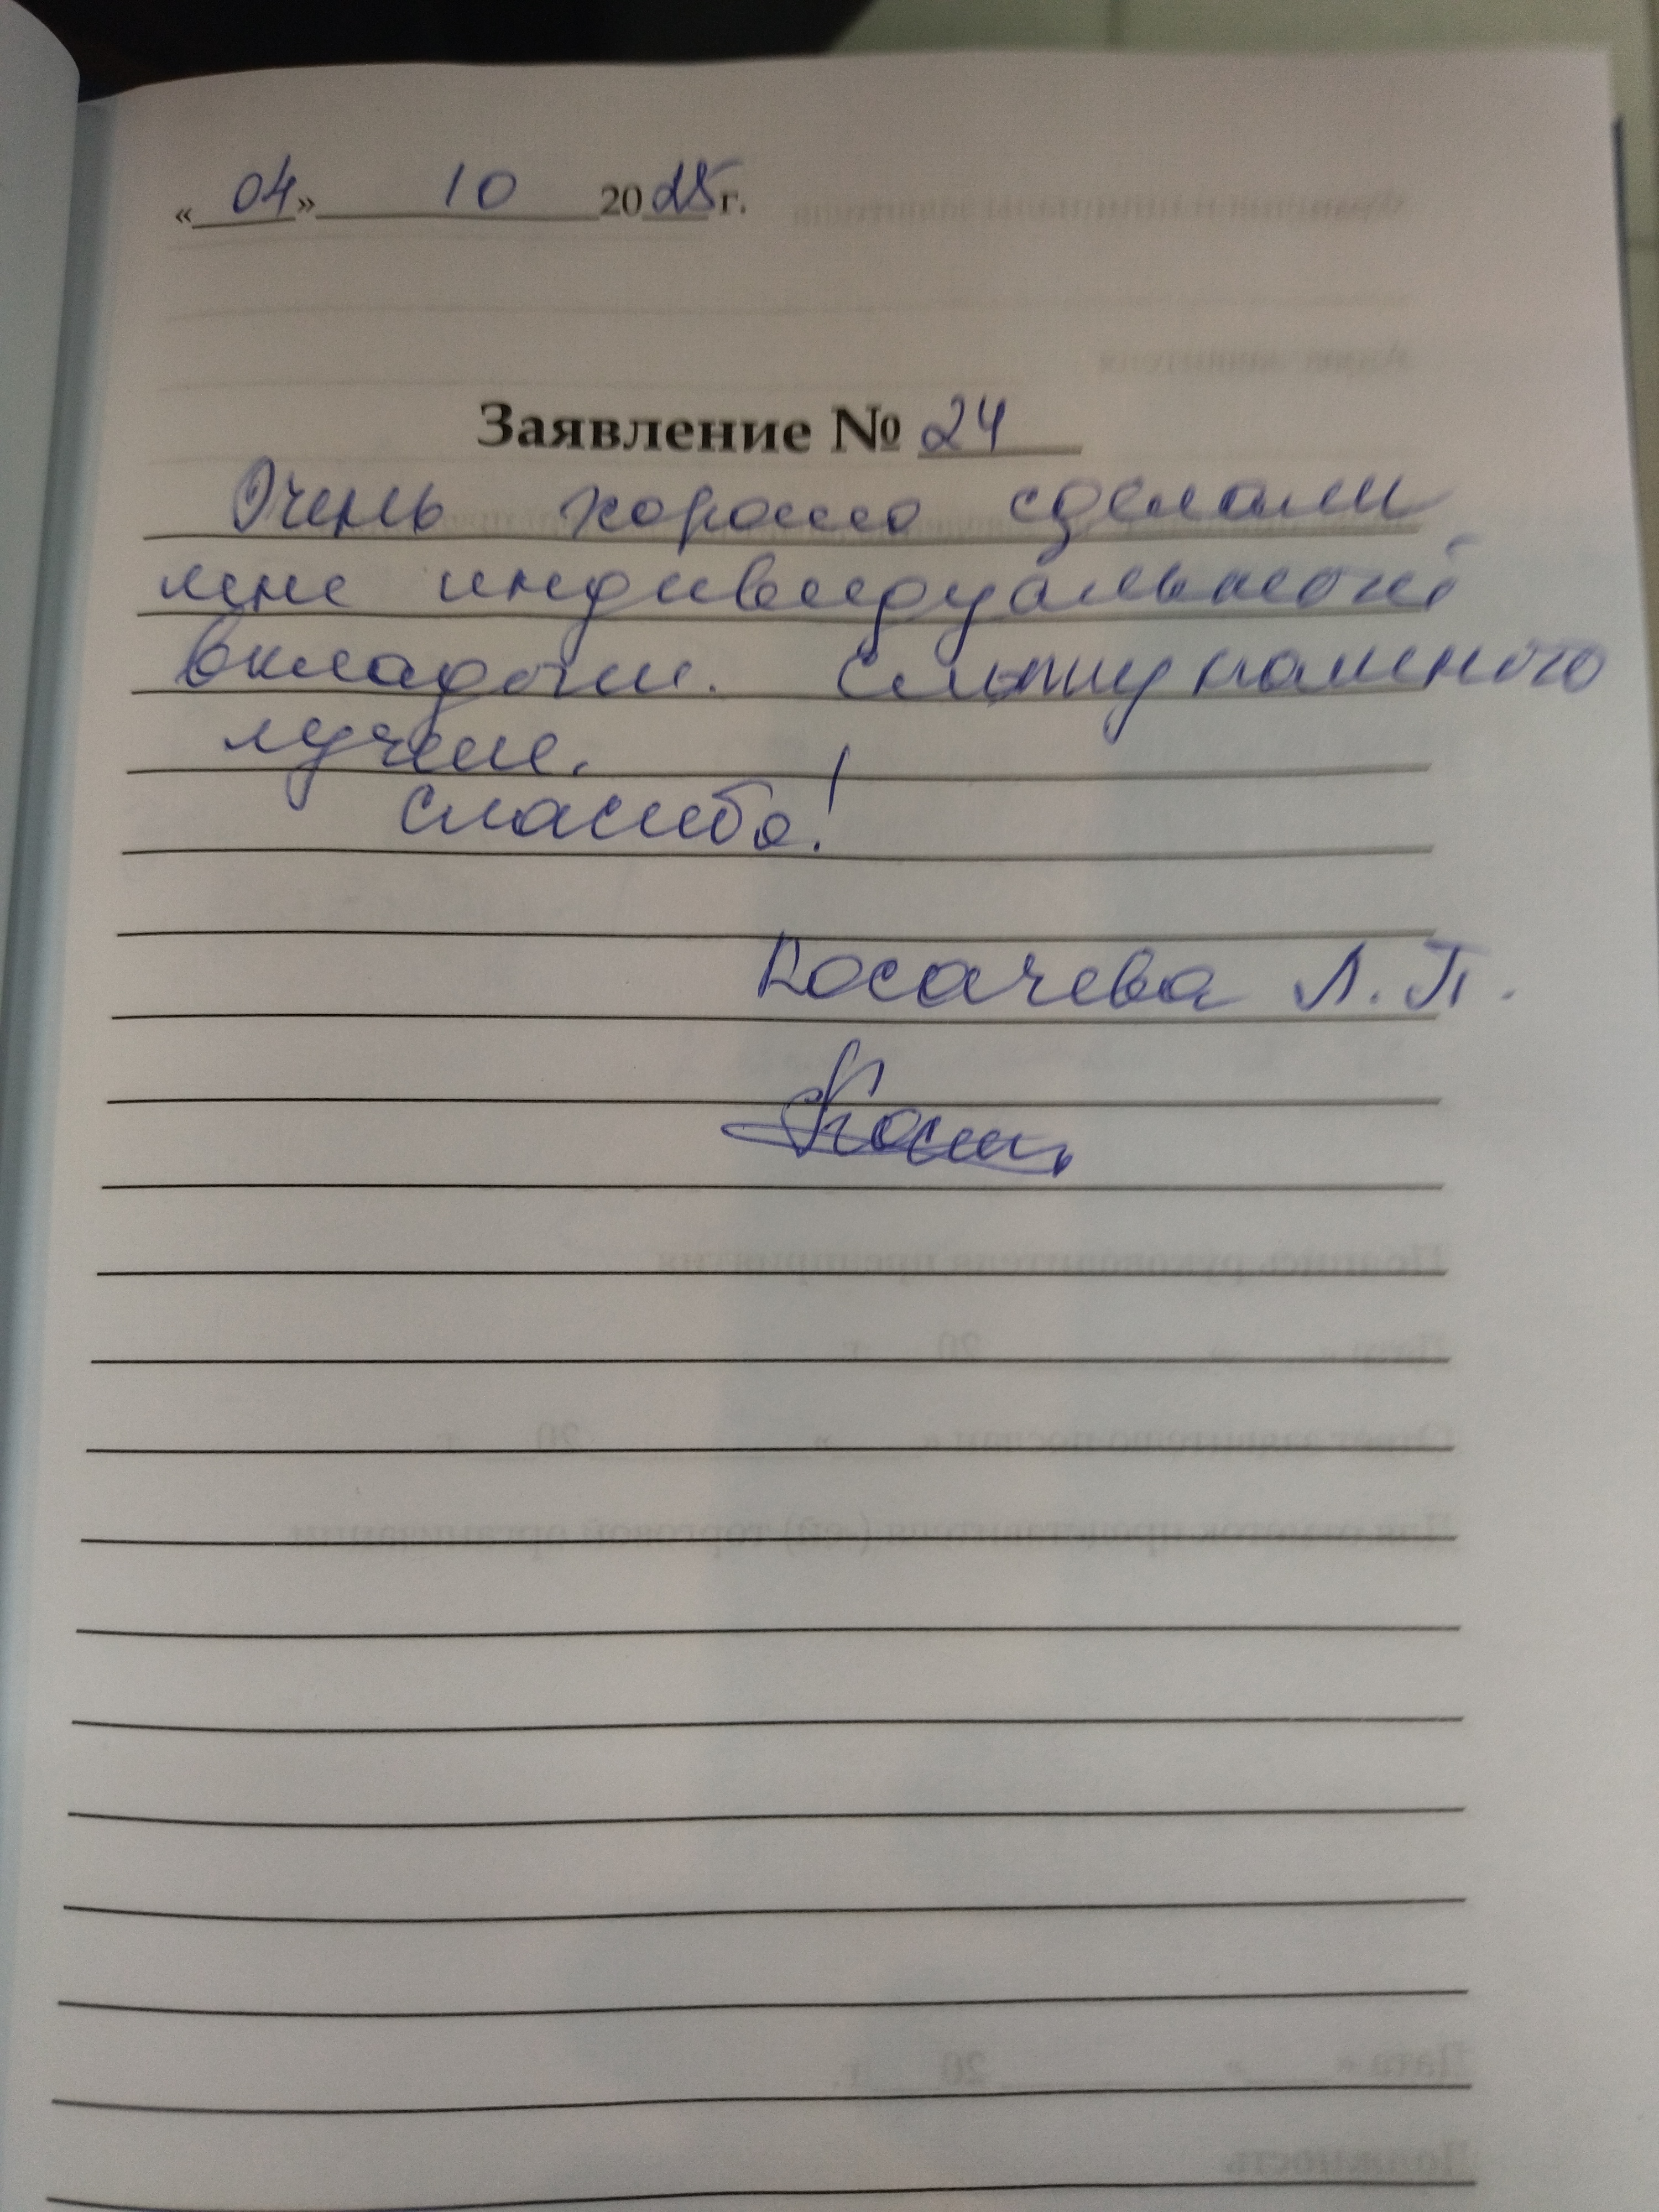 «04» 10 2025г.
Заявление № 24
Очень хорошо сделали
мне индивидуальной
вкладыш. Слышу намного
лучше.
спасибо!
Косачева Л.П.